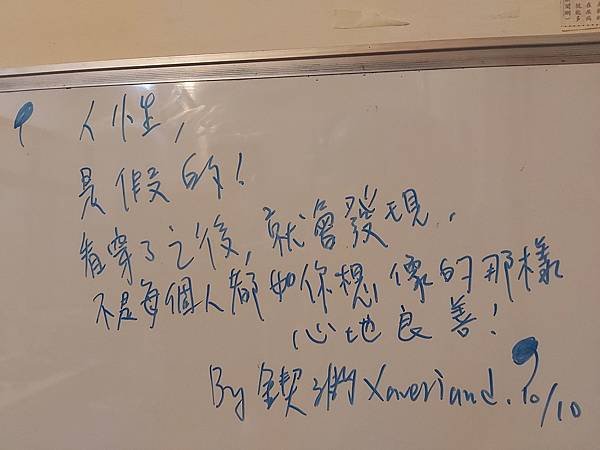 人性，
是假的！
看穿了之後，就會發現，
不是每個人都如你想像的那樣
心地良善！
By 鍥洲 Xaveriand. 10/10